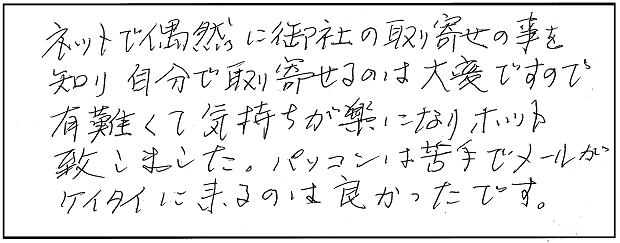 ネットで偶然に御社の取り寄せの事を
知り自分で取り寄せるのは大変ですので
有難くて気持ちが楽になりホット
致しました。パソコンは苦手でメールが
ケイタイに来るのは良かったです。